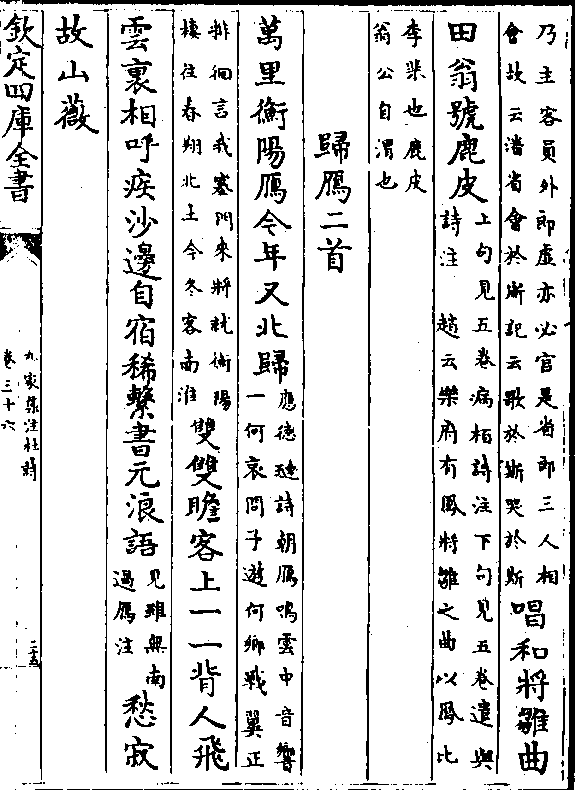 乃主客員外郎虛亦必官是省郎三人相
會故云潘省會於斯記云歌於斯哭於斯
唱和將雛曲
田翁號鹿皮
上句見五卷病栢詩注下句見五卷遣與
詩注　趙云樂府有鳳將雛之曲以鳳比
李梁也鹿皮
翁公自渭也
歸鴈二首
萬里衡陽鴈今年又北歸
應德璉詩朝鴈鳴雲中音響
一何哀問子遊何鄉戢翼正
徘徊言我塞門來將就衡陽
棲往春翔北土今冬客南淮
雙雙瞻客上一一背人飛
雲裏相呼疾沙邊自宿稀繫書元浪語
見雖無南
過鴈注
愁寂
故山薇
欽定四庫全書
九家集注杜詩
卷三十六
二十五